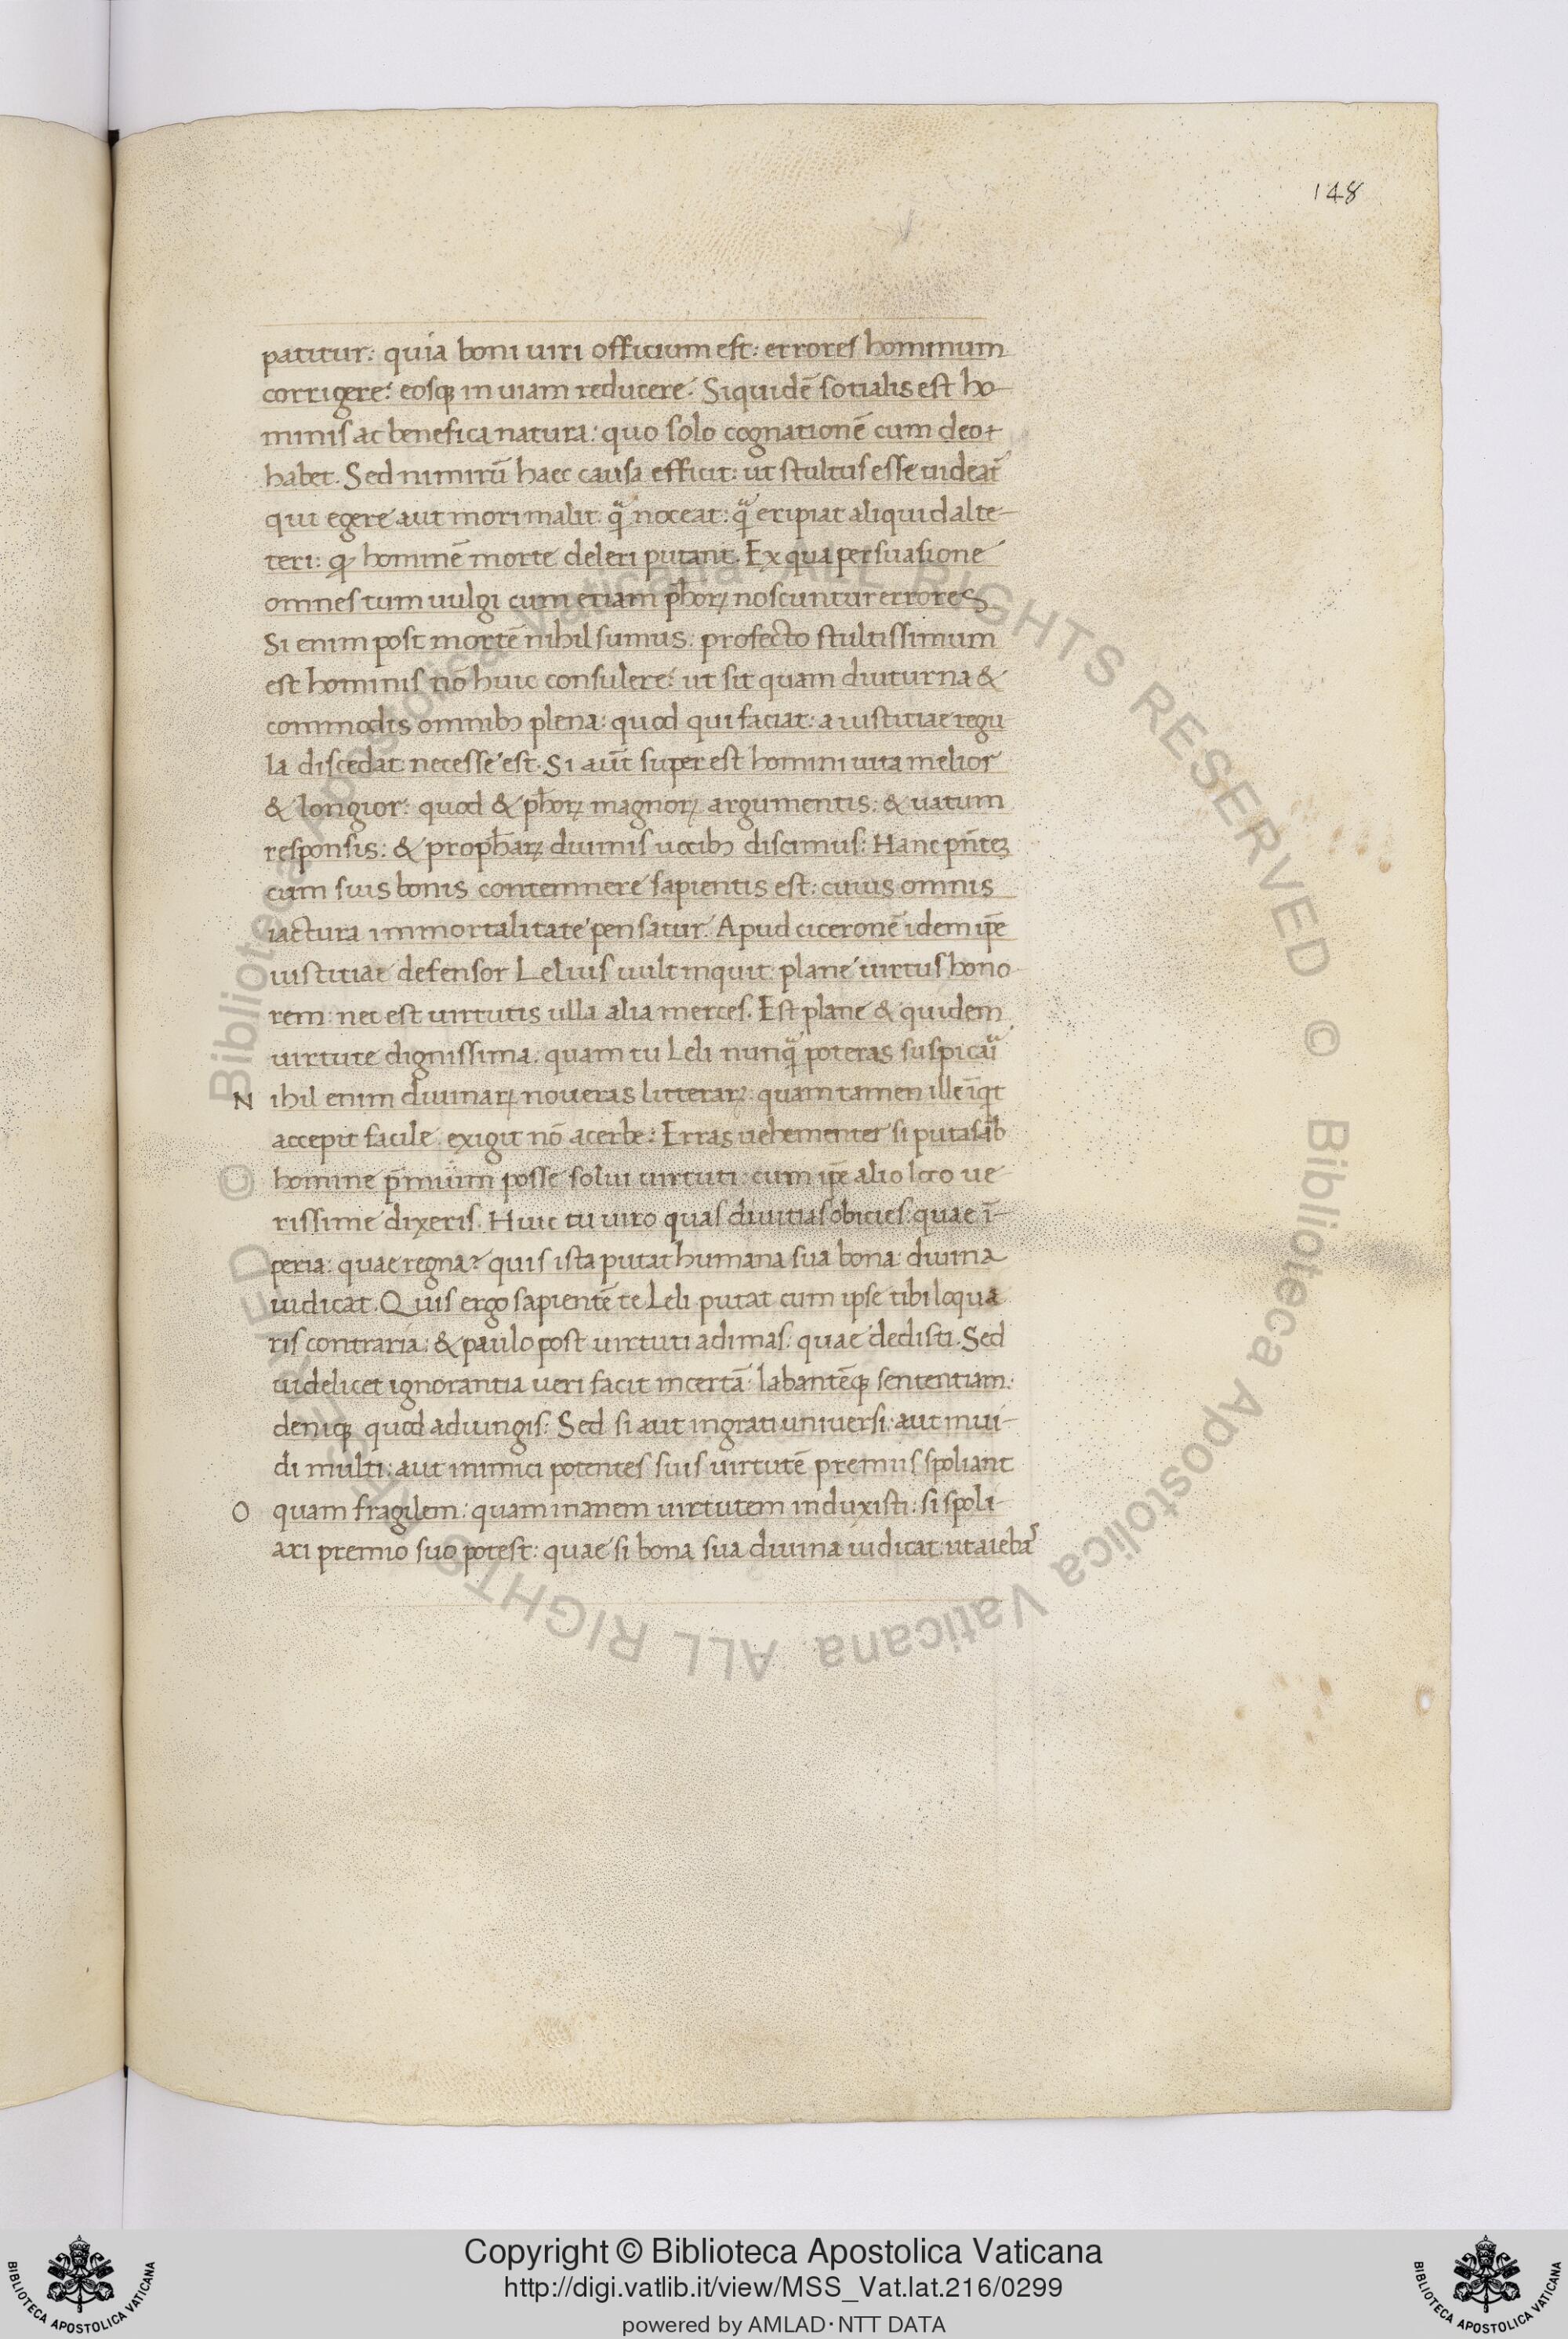 148
patitur: quia boni uiri officium est: errores hominum
corrigere: eosqꝫ in uiam reducere. Siquidē sotialis est ho-
minis ac benefica natura: quo solo cognationē cum deo
habet. Sed nimirū haec causa efficit: ut stultus esse uideat̄
qui egere aut mori malit qͣ̄ noceat: qͣ̄ eripiat aliquid alte-
teri: ꝙ hominē morte deleri putant. Ex qua persuasione
omnes tum uulgi cum etiam ph̄oꝝ noscuntur errores
Si enim post mortē nihil sumus: profecto stultissimum
est hominis nō huic consulere: ut sit quam diuturna &
commodis omnibꝫ plena: quod qui faciat: a iustitiae regu
la discedat necesse est. Si aūt super est homini uita melior
& longior: quod & ph̄oꝝ magnoꝝ argumentis: & uatum
responsis: & proph̄aꝝ diuinis uocibꝫ discimus: Hanc pn̄teꝫ
cum suis bonis contemnere sapientis est: cuius omnis
iactura immortalitate pensatur. Apud ciceronē idem ip̄e
iustitiae defensor Lelius uult inquit: plane uirtus hono
rem: nec est uirtutis ulla alia merces. Est plane & quidem
uirtute dignissima. quam tu Leli nunqͣ̄ poteras suspicaͣi
N ihil enim diuinaꝝ noueras litteraꝝ: quam tamen ille īqͥt
accepit facile. exigit nō acerbe: Erras uehementer si putas ab
homine p̄mium posse solui uirtuti: cum ip̄e alio loco ue
rissime dixeris. Huic tu uiro quas diuitias obicies: quae ī-
peria: quae regna? quis ista putat humana sua bona diuina
iudicat. Quis ergo sapientē te Leli putat cum ipse tibi loqua
ris contraria: & paulo post uirtuti adimas: quae dedisti. Sed
uidelicet ignorantia ueri facit incertā labantēqꝫ sententiam:
deniqꝫ quod adiungis: Sed si aut ingrati uniuersi: aut inui-
di multi: aut inimici potentes suis uirtutē premiis spoliant
O quam fragilem: quam inanem uirtutem induxisti: si spoli-
ari premio suo potest: quae si bona sua diuina iudicat: ut aiebaˢ
© Biblioteca Apostolica Vaticana ALL RIGHTS RESERVED © Biblioteca Apostolica Vaticana ALL RIGHTS RESERVED
BIBLIOTECA APOSTOLICA VATICANA
Copyright © Biblioteca Apostolica Vaticana
http://digi.vatlib.it/view/MSS_Vat.lat.216/0299
powered by AMLAD·NTT DATA
BIBLIOTECA APOSTOLICA VATICANA